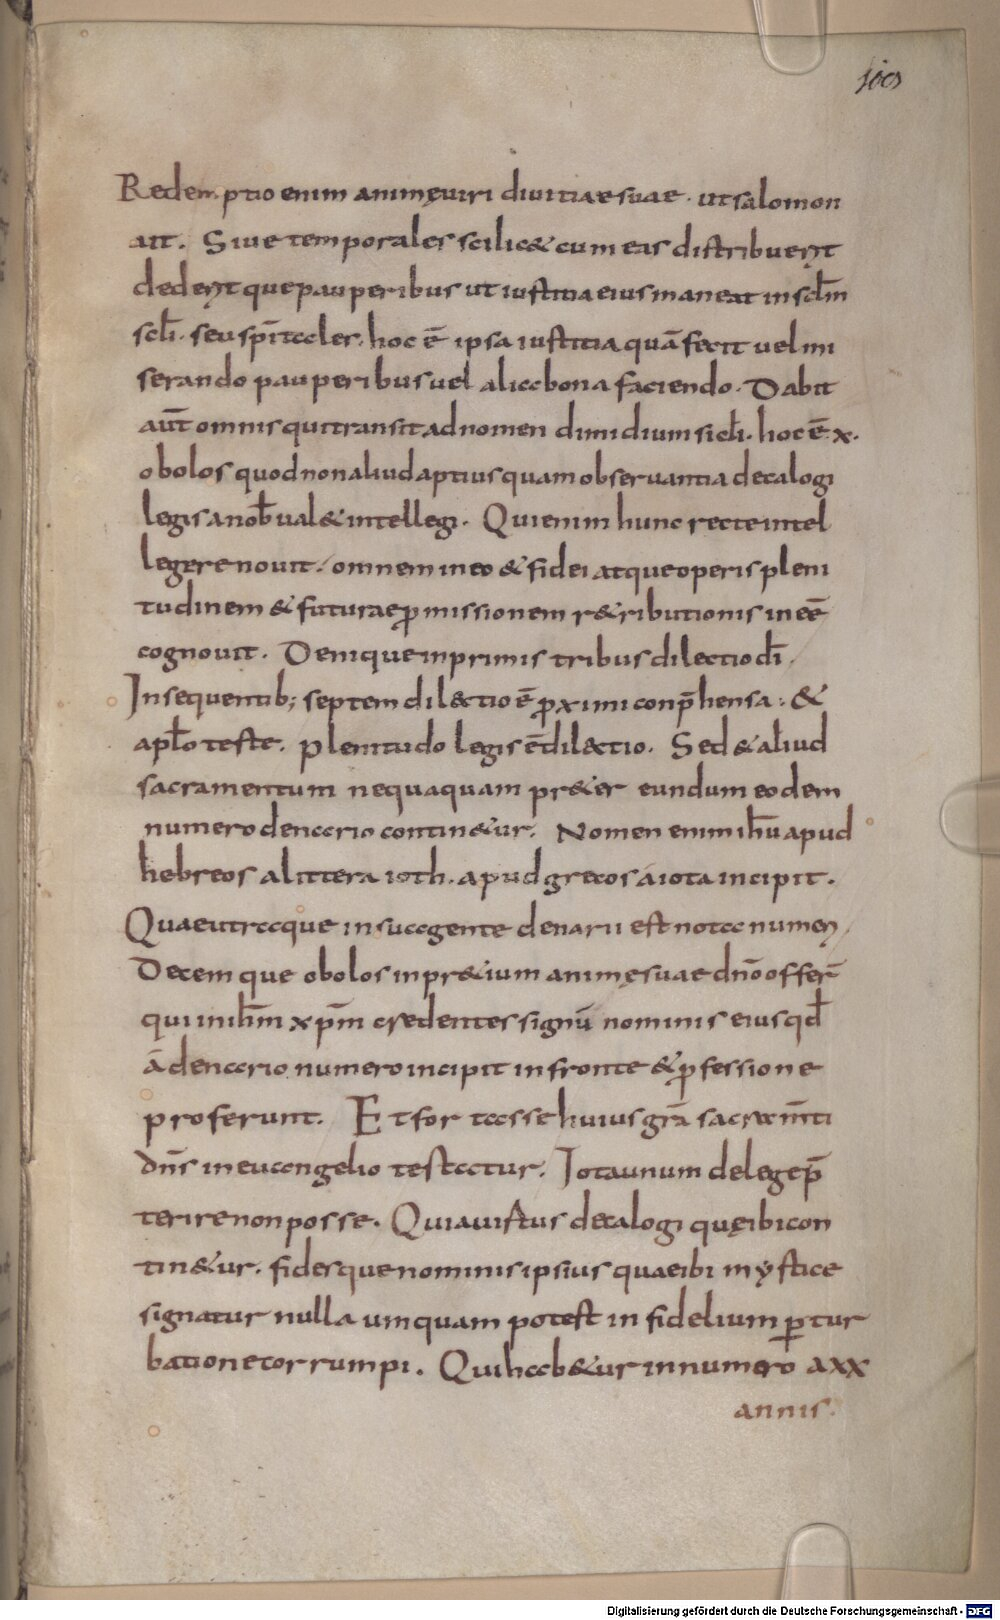 100
Redemptio enim animę viri divitiae suae · ut salomon
ait. Sive temporales scilic& cum eas distribuer̄t
deder̄t que pauperibus ut iustitia eius maneat in scl̄m
scl̄i · seu spīt̄aler · hoc ē ipsa iustitia quā fecit vel mi
serando pauperibus vel alia bona faciendo · Dabit
aūt omnis qui transit ad nomen dimidium sicli · hoc ē · x ·
obolos quod non aliud aptius quam observantia decalogi
legis a nob̄ val& intellegi · Qui enim hunc recte intel
legere novit / omnem in eo & fidei atque operis pleni
tudinem & futurae ꝓmissionem r&ributionis in eē
cognovit · Denique in primis tribus dilectio dī ·
In sequentib; septem dil&tio ē ꝓximi conp̄hensa : &
apl̄o teste · plenitudo legis ē dil&tio · Sed & aliud
sacramentum nequaquam pr&er eundum eodem
numero denario contin&ur · Nomen enim ih̄u apud
hebreos a littera ioth · apud grecos a iota incipit ·
Quae utraque in sua gente denarii est nota numeri
Decem que obolos in pr&ium animę suae dn̄o offer̄
qui in ih̄m xp̄m credentes signū nominis eius qd̄
a denario numero incipit in fronte & ꝓfessione
proferunt · Et fortasse huius gr̄a sacramn̄ti
dn̄s in evangelio testatur · Iota unum de lege p̄
terire non posse · Quia virtus decalogi quę ibi con
tin&ur · fidesque nominis ipsius quae ibi mystice
signatur nulla umquam potest infidelium ꝑtur
batione corrumpi · Qui hab&ur in numero a xx
annis ·
Digitalisierung gefördert durch die Deutsche Forschungsgemeinschaft - DFG